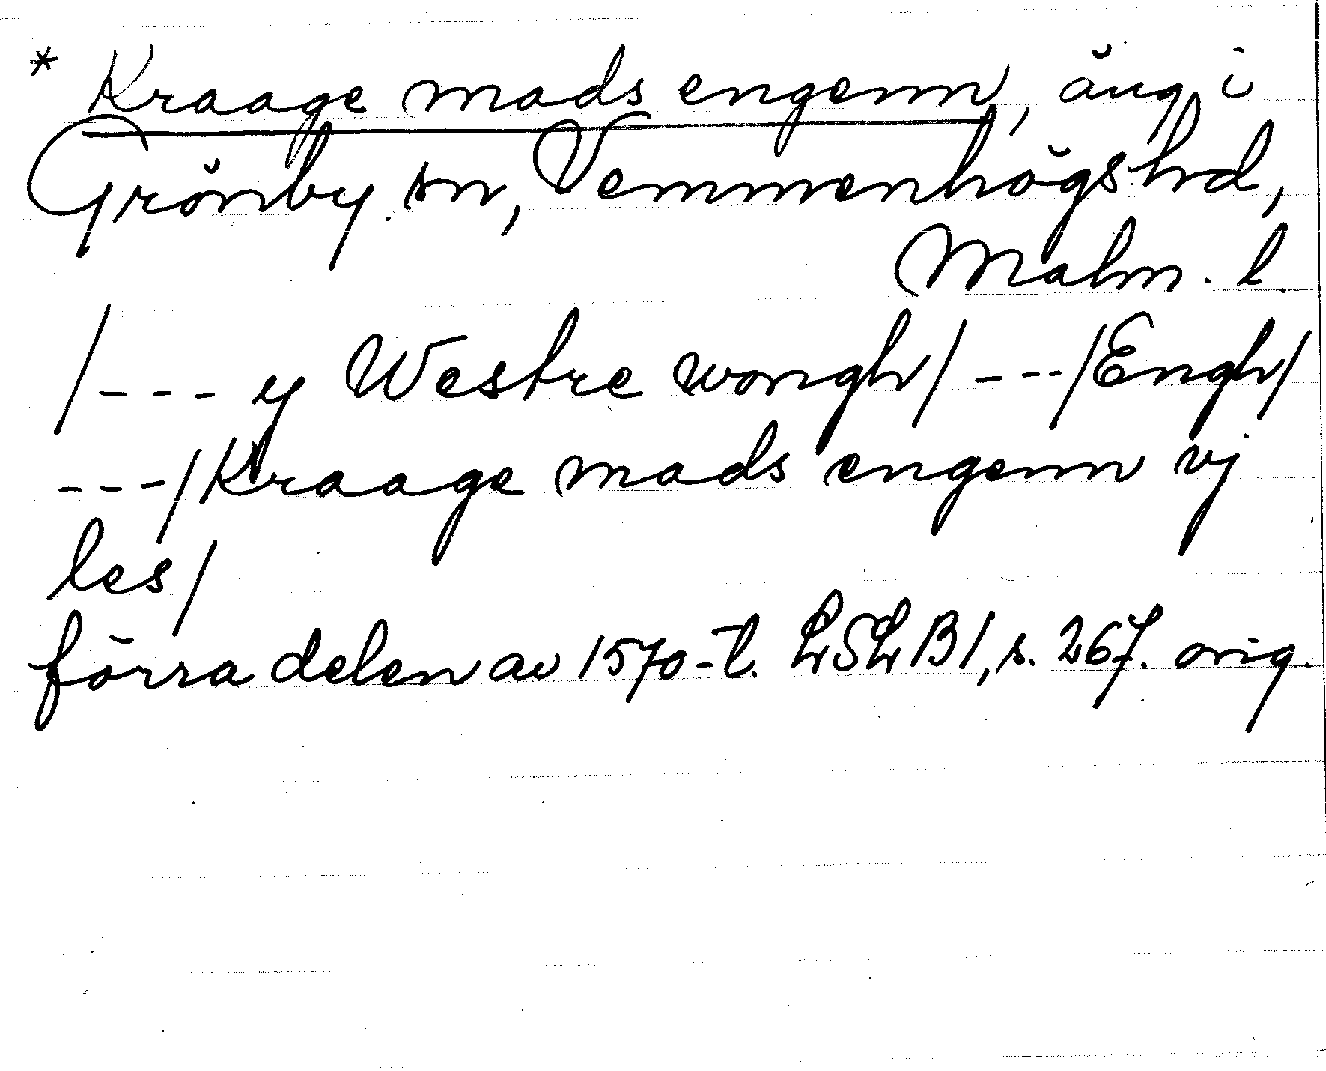 * Kraage mads engenn, äng i
Grönby sn, Vemmenhögs hd,
Malm. l.
/--- y Westre wongh/ ---/Engh/
---/Kraage mads engenn vj
les/
förra delen av 1570-t. LSLB1, s. 267. orig.